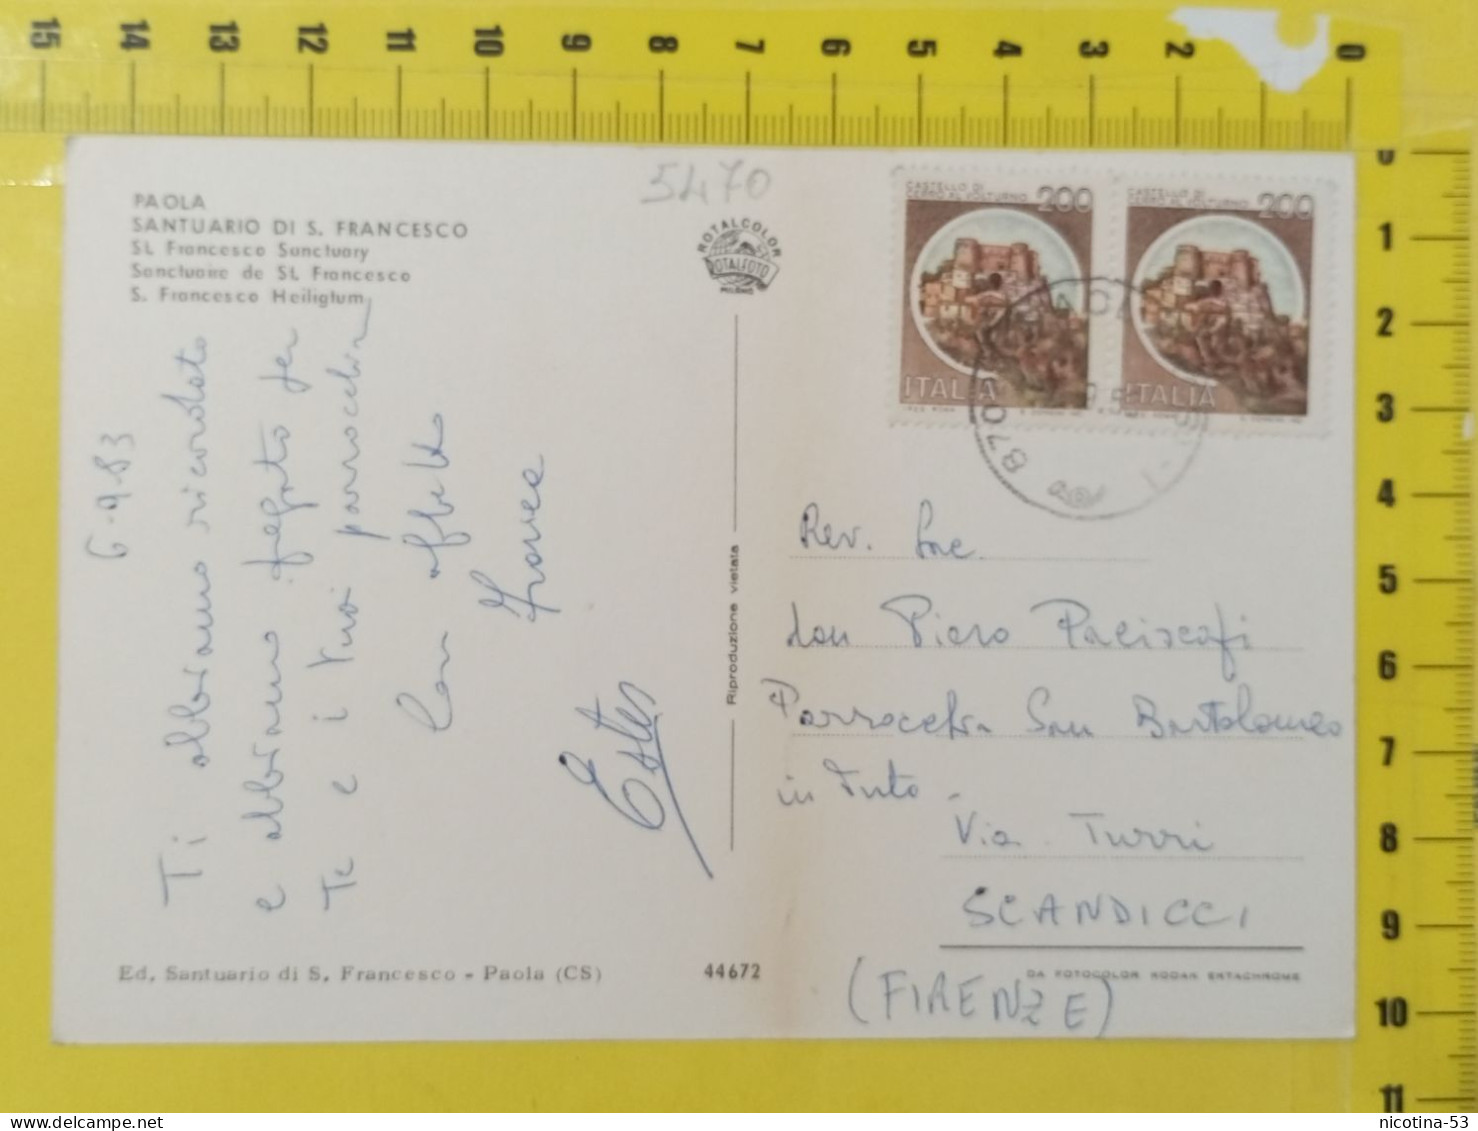 15 14 13 12 11 10 9 8 7 6 5 4 3 2 0
0
1
2
3
4
5
6
7
8
9
10
11
5470
PAOLA
SANTUARIO DI S. FRANCESCO
St. Francesco Sanctuary
Sanctuaire de St. Francesco
S. Francesco Heiligtum
ROTALCOLOR
ROTALFOTO
MILANO
CASTELLO DI
CERRO AL VOLTURNO 200
ITALIA
CASTELLO DI
CERRO AL VOLTURNO 200
ITALIA
6-9-83
Ti abbiamo ricordato
e abbiamo pregato per
Te e i tuoi parrocchiani
Con affetto
Franca
Ester
Riproduzione vietata
Rev.
don Piero Paciscopi
Parrocchia San Bartolomeo
in Tuto -
Via Turri
SCANDICCI
(FIRENZE)
Ed. Santuario di S. Francesco - Paola (CS)
44672
DA FOTOCOLOR KODAK EKTACHROME
nicotina-53